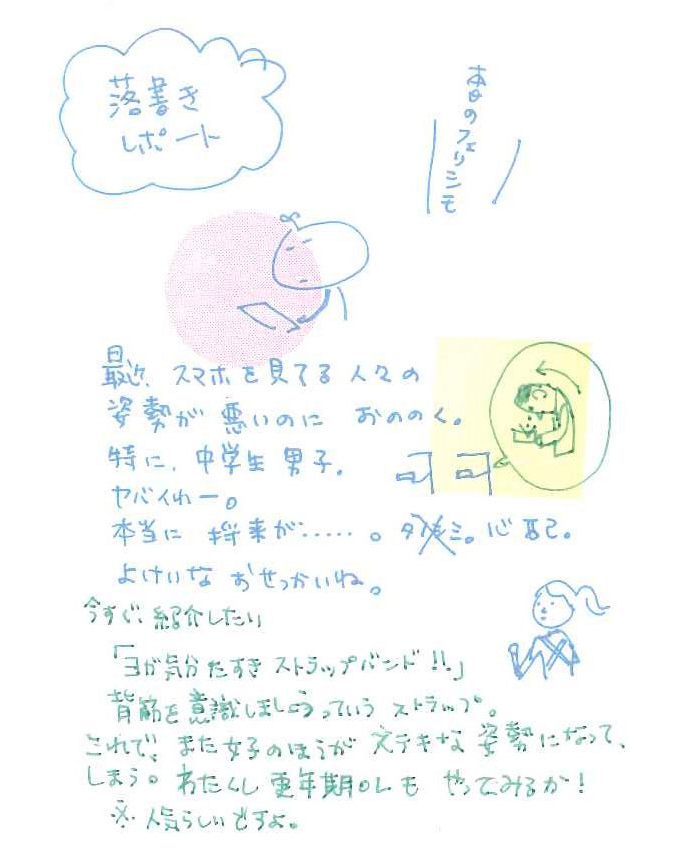 落書き
レポート
本日のフェリシモ
最近、スマホを見てる人々の
姿勢が悪いのに おののく。
特に、中学生男子。
ヤバイわー。
本当に 将来が……。 心配。
よけいな おせっかいね。
今すぐ、紹介したい
「ヨガ気分 たすき ストラップバンド!!」
背筋を意識しましょうっていう ストラップ。
これで、また女子のほうが ステキな 姿勢になって、
しまう。 わたくし 更年期OLも やってみるか!
※ 人気らしいですよ。